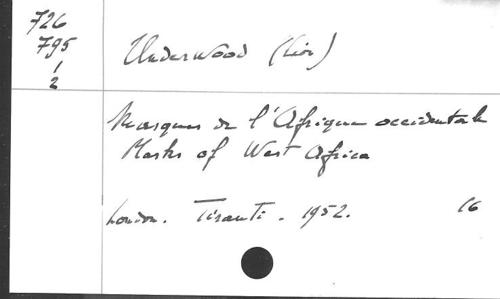 726
795
/
2
Underwood (Léon)
Masques de l'Afrique occidentale
Masks of West Africa
London. Tiranti. 1952. 16